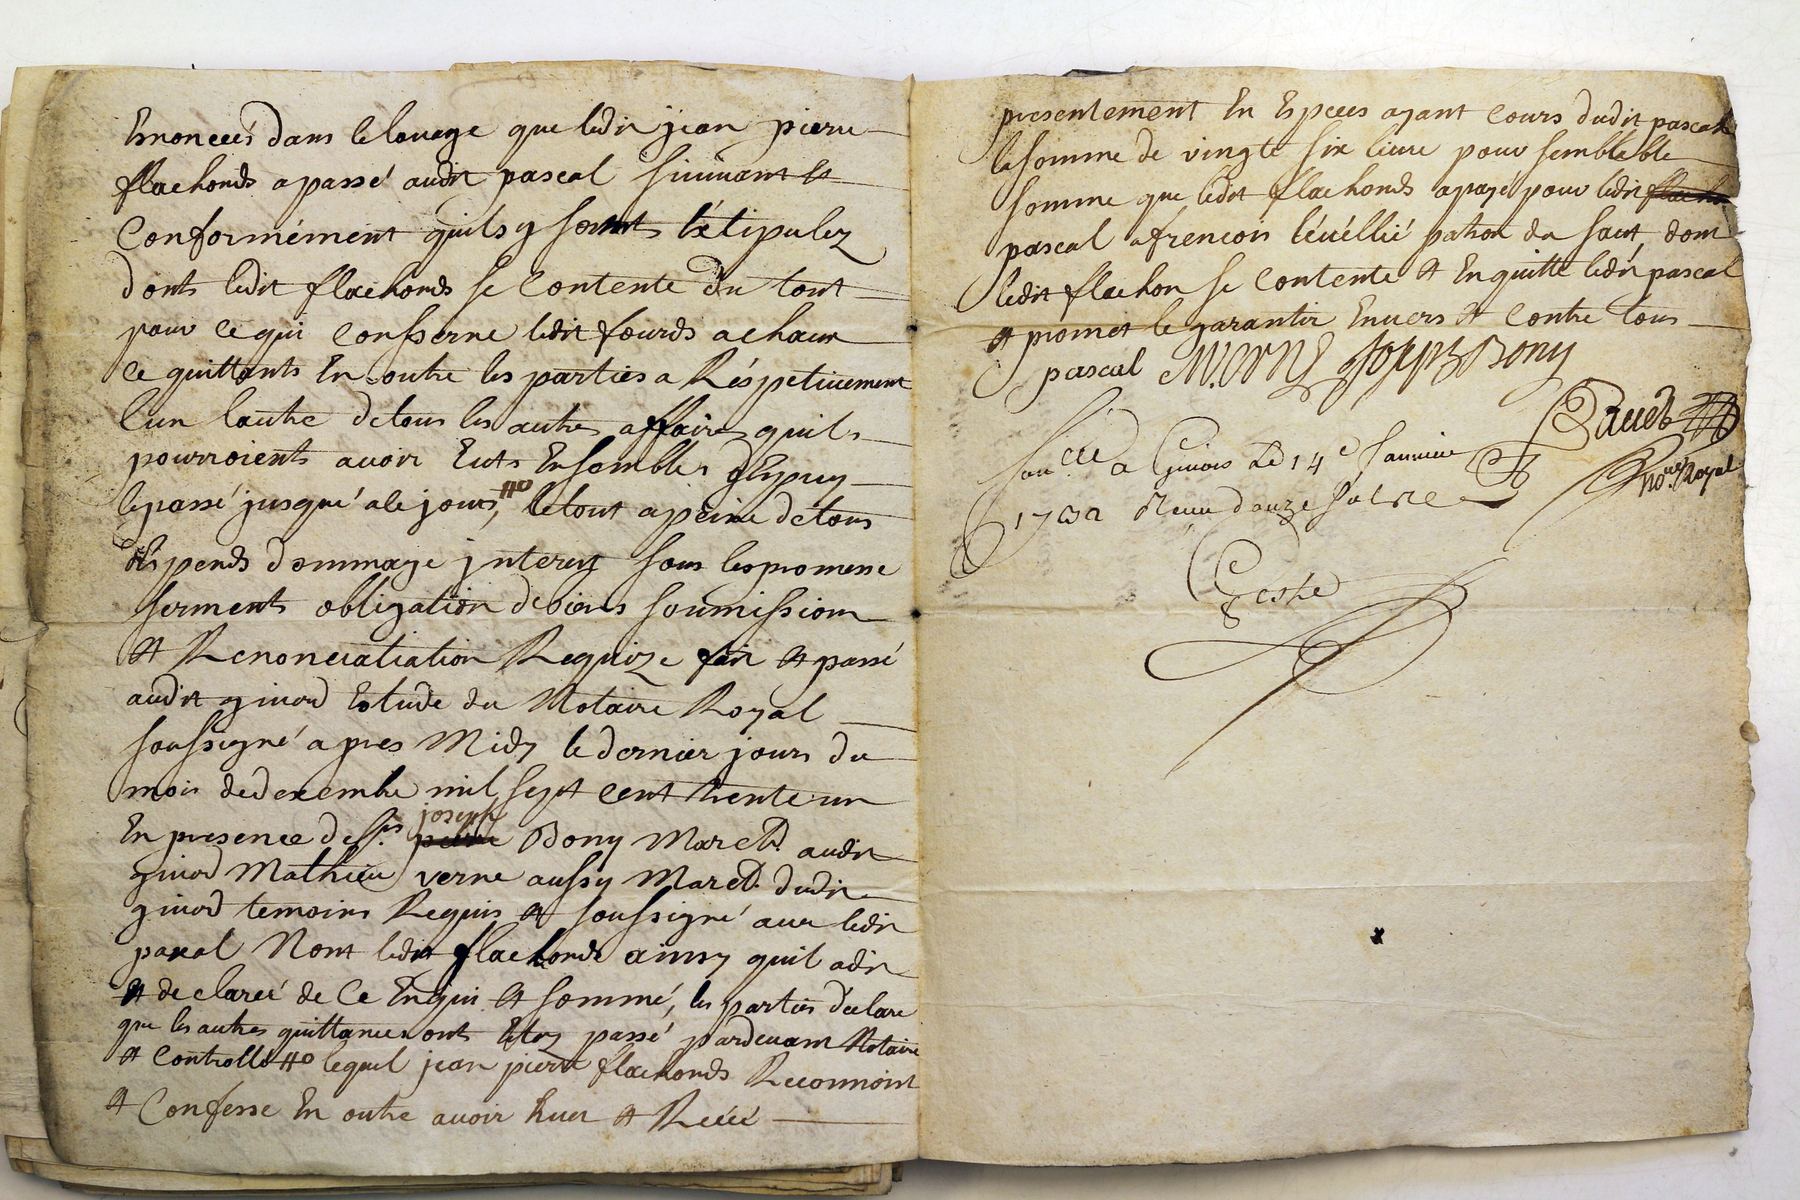 Enonceés dans le louage que ledit jean pierre
flachonds a passé audit pascal suivant et
Conformément quils y sonts stipulez
donts ledit flachonds se Contente du tout
pour ce qui Conserne ledit
ce quittants En outre les parties a Réspetivement
lun lautre de tous les autres affaires quils
pourroients avoir Euts Ensembles
le passé jusqué a le jours, #o le tout a peine de tous
déspends dommage jnterest sous les promesse
serments obligation de biens soumission
et Renonciatiation Requize fait et passé
audit givord Estude du Notaire Royal
soussigné apres Midy le dernier jours du
mois de dexembre mil sept cent trente un
En presence de Srs pierre joseph Bony March. audit
givord Mathieu verne aussy March. dudit
givord temoins Requis et soussigné avec ledit
pascal Nont ledit flachonds ainsy quil a dit
et declareé de Ce Enquis et sommé, les parties déclare
que les autres quittances onts passé pardevant Notaire
et Controllé #o lequel jean pierre flachonds Reconnoist
et Confesse En outre avoir heu et Receü
presentement En Espéces ayant Cours dudit pascal
la somme de vingte six livre pour semblable
somme que ledit flachonds a payé pour ledit flacho
pascal a frencois patron du saut, dont
ledit flachon se Contente et En quitte ledit pascal
et promet le garantir Envers et Contre tous
pascal M. Verne Joseph Bony
Pruet
no.re Royal
a Givors Le 14e Janvier
1732 Receu douze sols
Geste